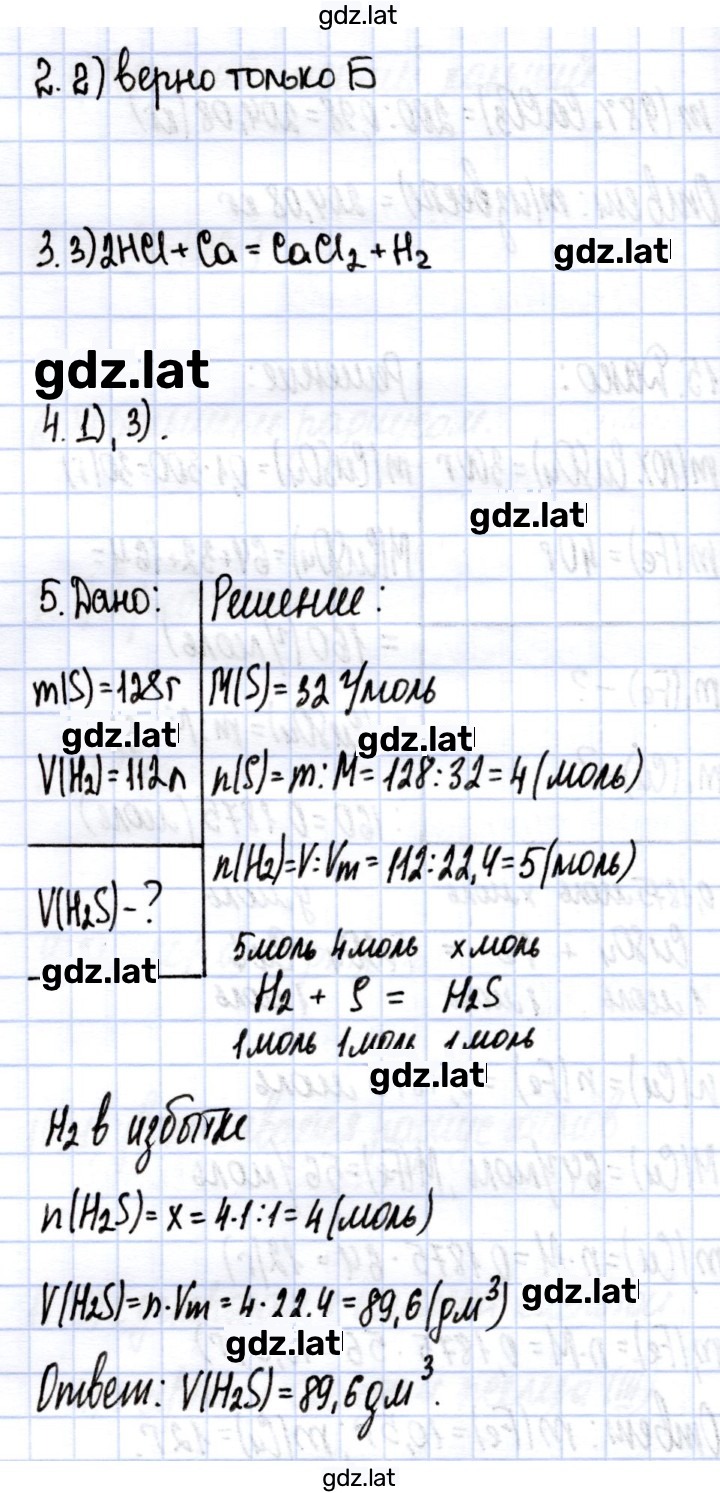 gdz.lat
2. 2) верно только Б
3. 3) 2HCl + Ca = CaCl₂ + H₂
gdz.lat
gdz.lat
4. 1), 3).
gdz.lat
5. Дано:
m(S) = 128 г
gdz.lat
V(H₂) = 112 л
V(H₂S) - ?
gdz.lat
Решение:
M(S) = 32 г/моль
gdz.lat
n(S) = m : M = 128 : 32 = 4 (моль)
n(H₂) = V : Vm = 112 : 22,4 = 5 (моль)
5 моль 4 моль x моль
H₂ + S = H₂S
1 моль 1 моль 1 моль
gdz.lat
H₂ в избытке
n(H₂S) = x = 4·1 : 1 = 4 (моль)
V(H₂S) = n·Vm = 4 · 22.4 = 89,6 (дм³)
gdz.lat
gdz.lat
Ответ: V(H₂S) = 89,6 дм³.
gdz.lat